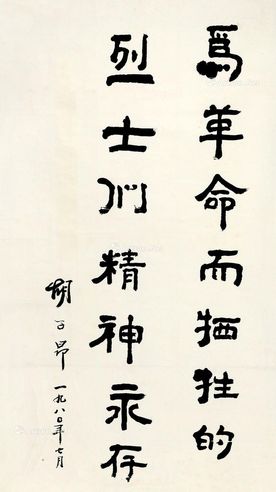 爲革命而牺牲的
烈士们精神永存
胡子昂 一九八〇年七月